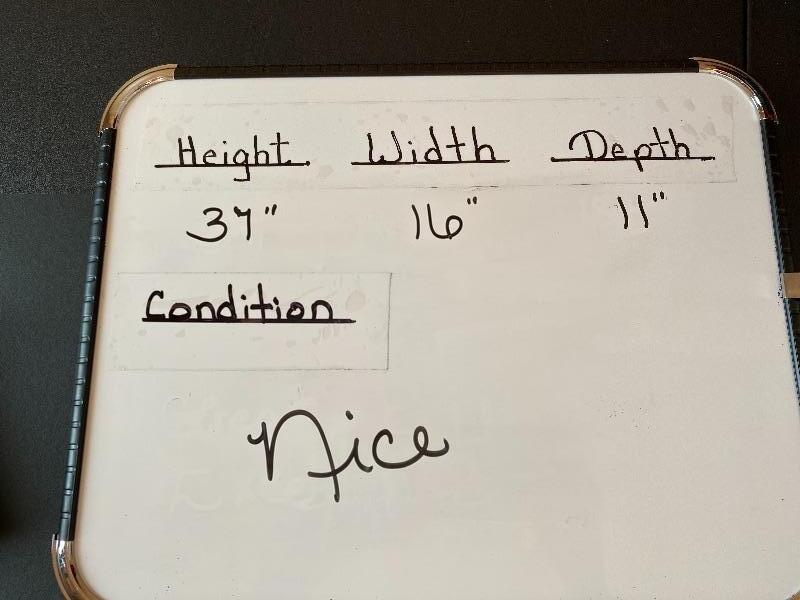 Height Width Depth
37" 16" 11"
Condition
Nice